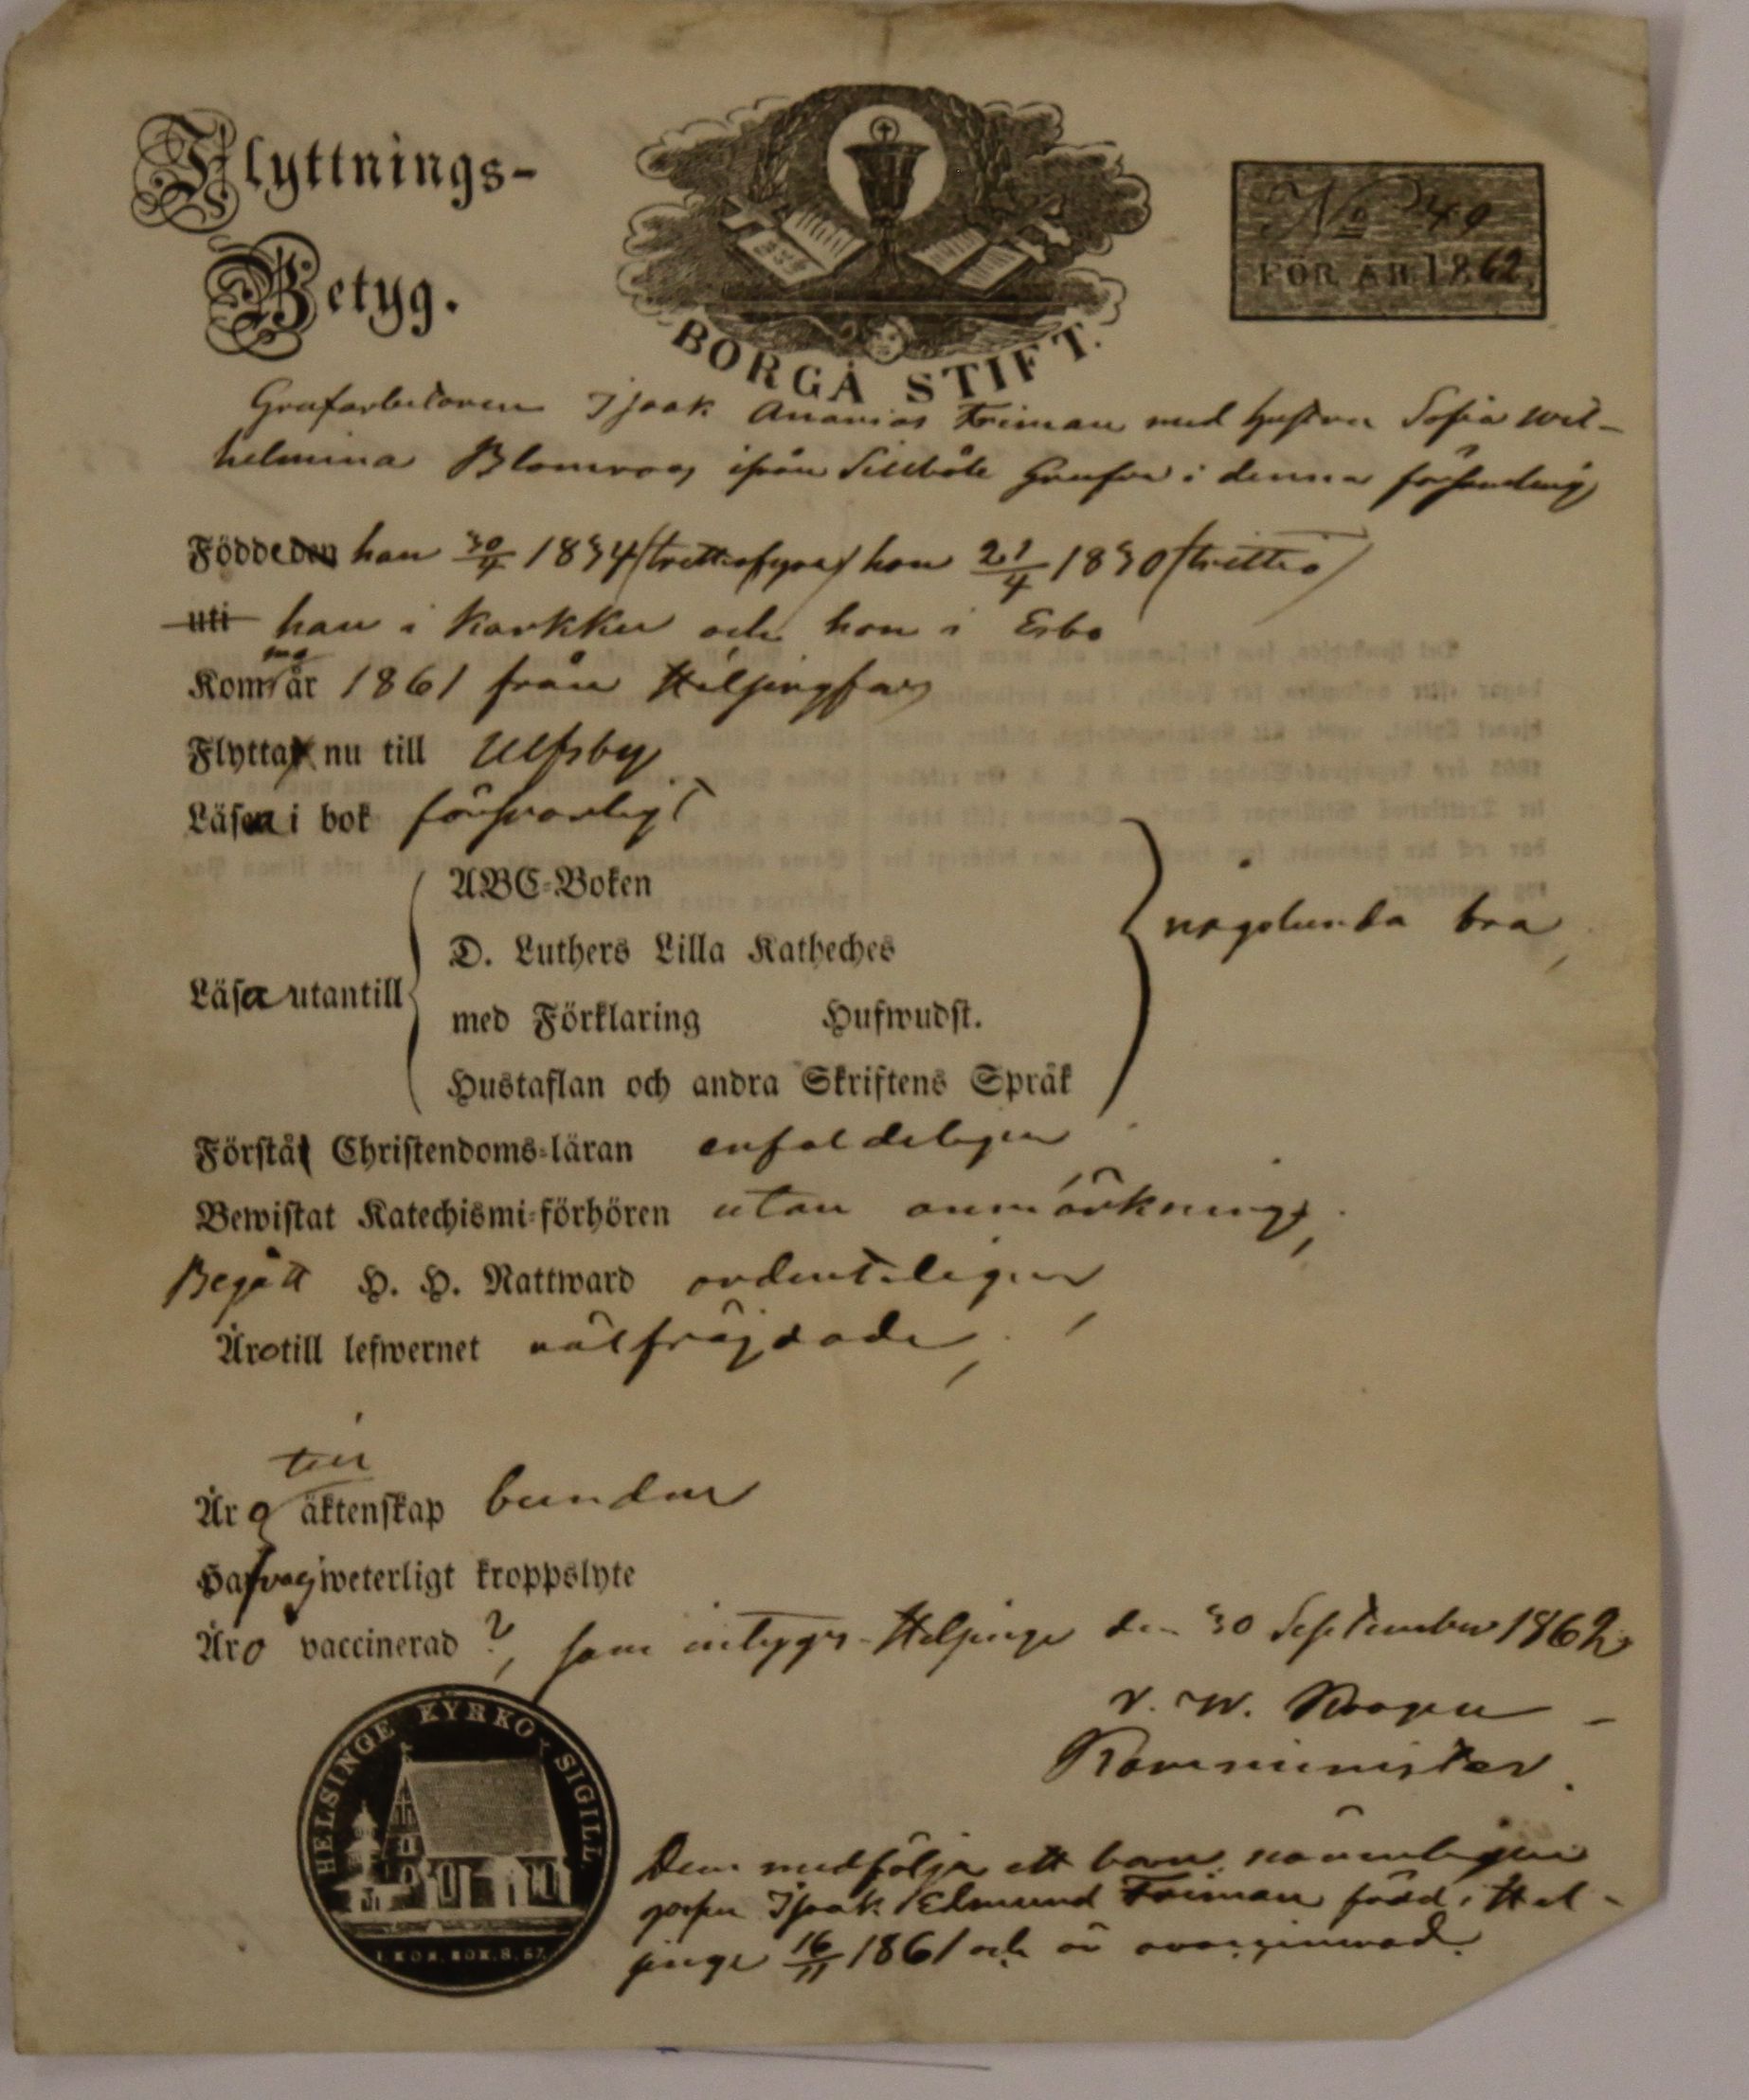 Flyttnings-
Betyg.
BORGÅ STIFT.
No 49
FÖR ÅR 1862.
Grufarbetaren Isaak Ananias Friman med hustru Sofia Wil-
helmina Blomroos ifrån Sillböle Grufva i denna församling
Födde den han 30/4 1834 (trettiofyra) hon 21/4 1830 (trettio)
uti han i Karkku och hon i Esbo
Kommo år 1861 från Helsingfors
Flytta nu till Ulfsby
Läsa i bok försvarligt
ABC-Boken
D. Luthers Lilla Katheches
Läsa utantill
med Förklaring Hufwudst.
Hustaflan och andra Skriftens Språk
någolunda bra
Förstå Christendoms-läran enfaldeligen
Bewistat Katechismi-förhören utan anmärkning,
Begått H. H. Nattward ordenteligen
Äro till lefwernet välfräjdade,
till
Äro äktenskap bundne
Hafva ej weterligt kroppslyte
Äro vaccinerad ?, som intygas. Helsinge den 30 September 1862
Komminister.
HELSINGE KYRKO SIGILL.
1. KON. BOK. 8. 57.
Dem medfölja ett barn nämnligen
gossen Isaak Edmund Friman född i Hel-
singe 16/11 1861 och är ovaccinerad.